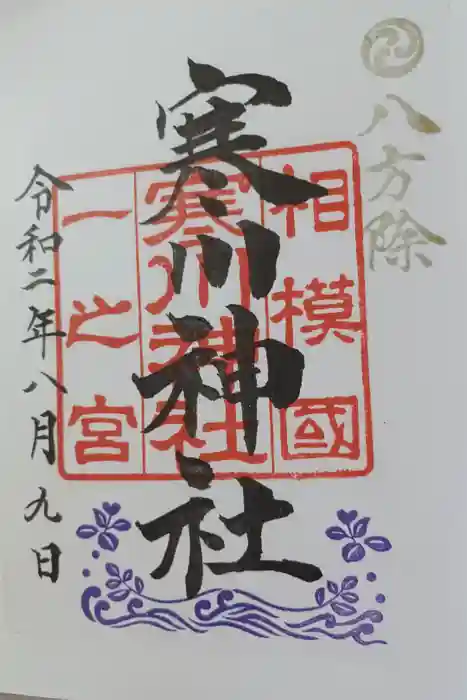 八方除
寒川神社
相模國
寒川神社
一之宮
令和二年八月九日